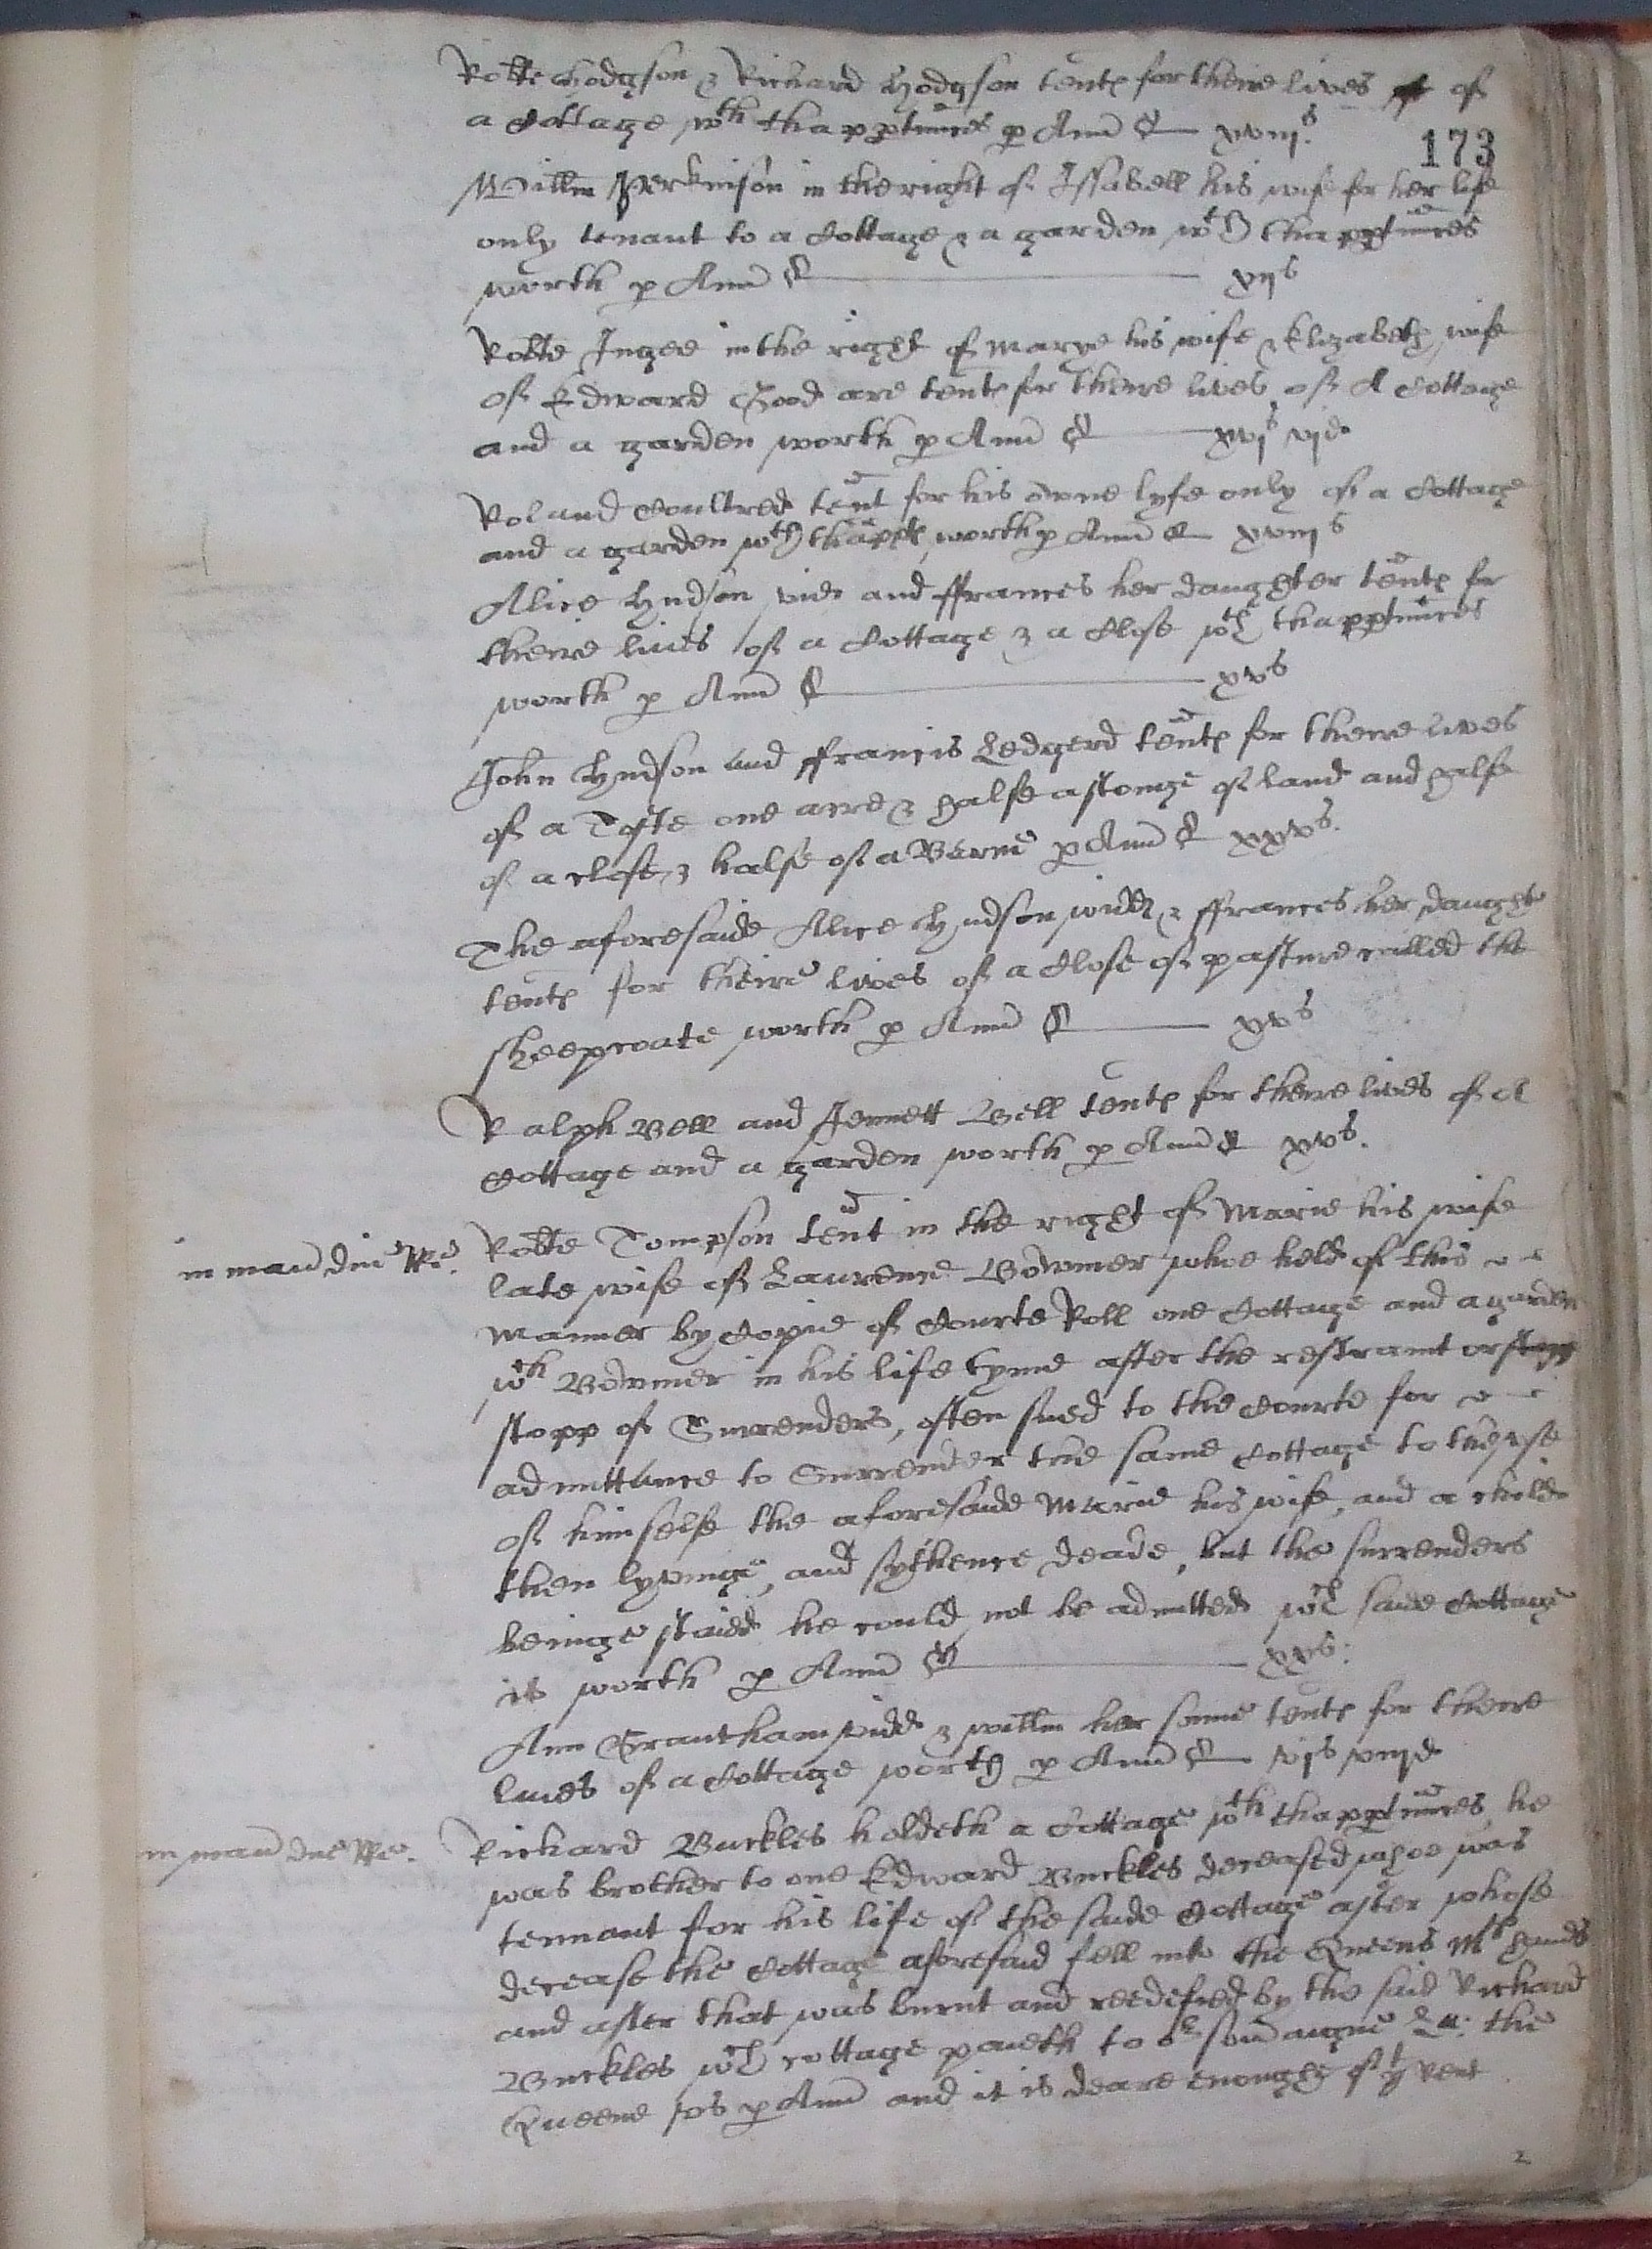 Robte Hodgson & Richard Hodgson tents for theire lives of
a Cottage wth thapptnnces p Ann̄ xviijs.
173
Willm Perkinson in the right of Issabell his wife for her life
only tenant to a Cottage & a garden wth thapptnnces
worth p Ann̄ xijs
Robte Ingee in the right of Marye his wife & Elizabeth wife
of Edward Good are tents for theire lives of A Cottage
and a garden worth p Ann̄ xvjs vjd
Roland tent for his owne lyfe only of a Cottage
and a garden wth thapp worth p Ann̄ xviijs
Alice Hyndson vid and ffrances her daughter tents for
theire lives of a Cottage & a Close wth thapptnnces
worth p Ann̄ xvs
John Hyndson and ffrancis Ledgerd tents for theire lives
of a Tofte one acre & halfe a stonge of land and halfe
of a close, & halfe of a Barne p Ann̄ xxvs.
The aforesaide Alice Hyndson widd & ffrances her daught
tents for theire lives of a Close of pasture called the
sheepcoate worth p Ann̄ xvs
Ralph Bell and Jennett Bell tents for theire lives of A
Cottage and a garden worth p Ann̄ xvs.
in man dne Rne. Robte Tompson tent in the right of Marie his wife
late wife of Laurence Bowmer whoe held of this
Manner by Copie of Courte Roll one Cottage and a garden
wch Bowmer in his life tyme after the restraint or
stopp of Surrenders, often sued to the Courte for
admittance to Surrender the same Cottage to the use
of himselfe the aforesaide Marie his wife, and a child
then lyvinge, and sythence deade, but the surrenders
beinge staied he could not be admitted wch saide Cottage
is worth p Ann̄ xxs.
Ann Grantham widd & Willm her sonne tents for theire
lives of a Cottage worth p Ann̄ vjs viijd
in man dne Rne. Richard Buckles holdeth a Cottage wth thapptnnces, he
was brother to one Edward Buckles deceased whoe was
tennant for his life of the saide Cottage after whose
decease the Cottage aforesaid fell into the Queens Mts hands
and after that was burnt and reedefied by the said Richard
Buckles wch cottage paieth to or Soūaigne La: the
Queene vs p Ann̄ and it is deare enoughe of yt rent.
2